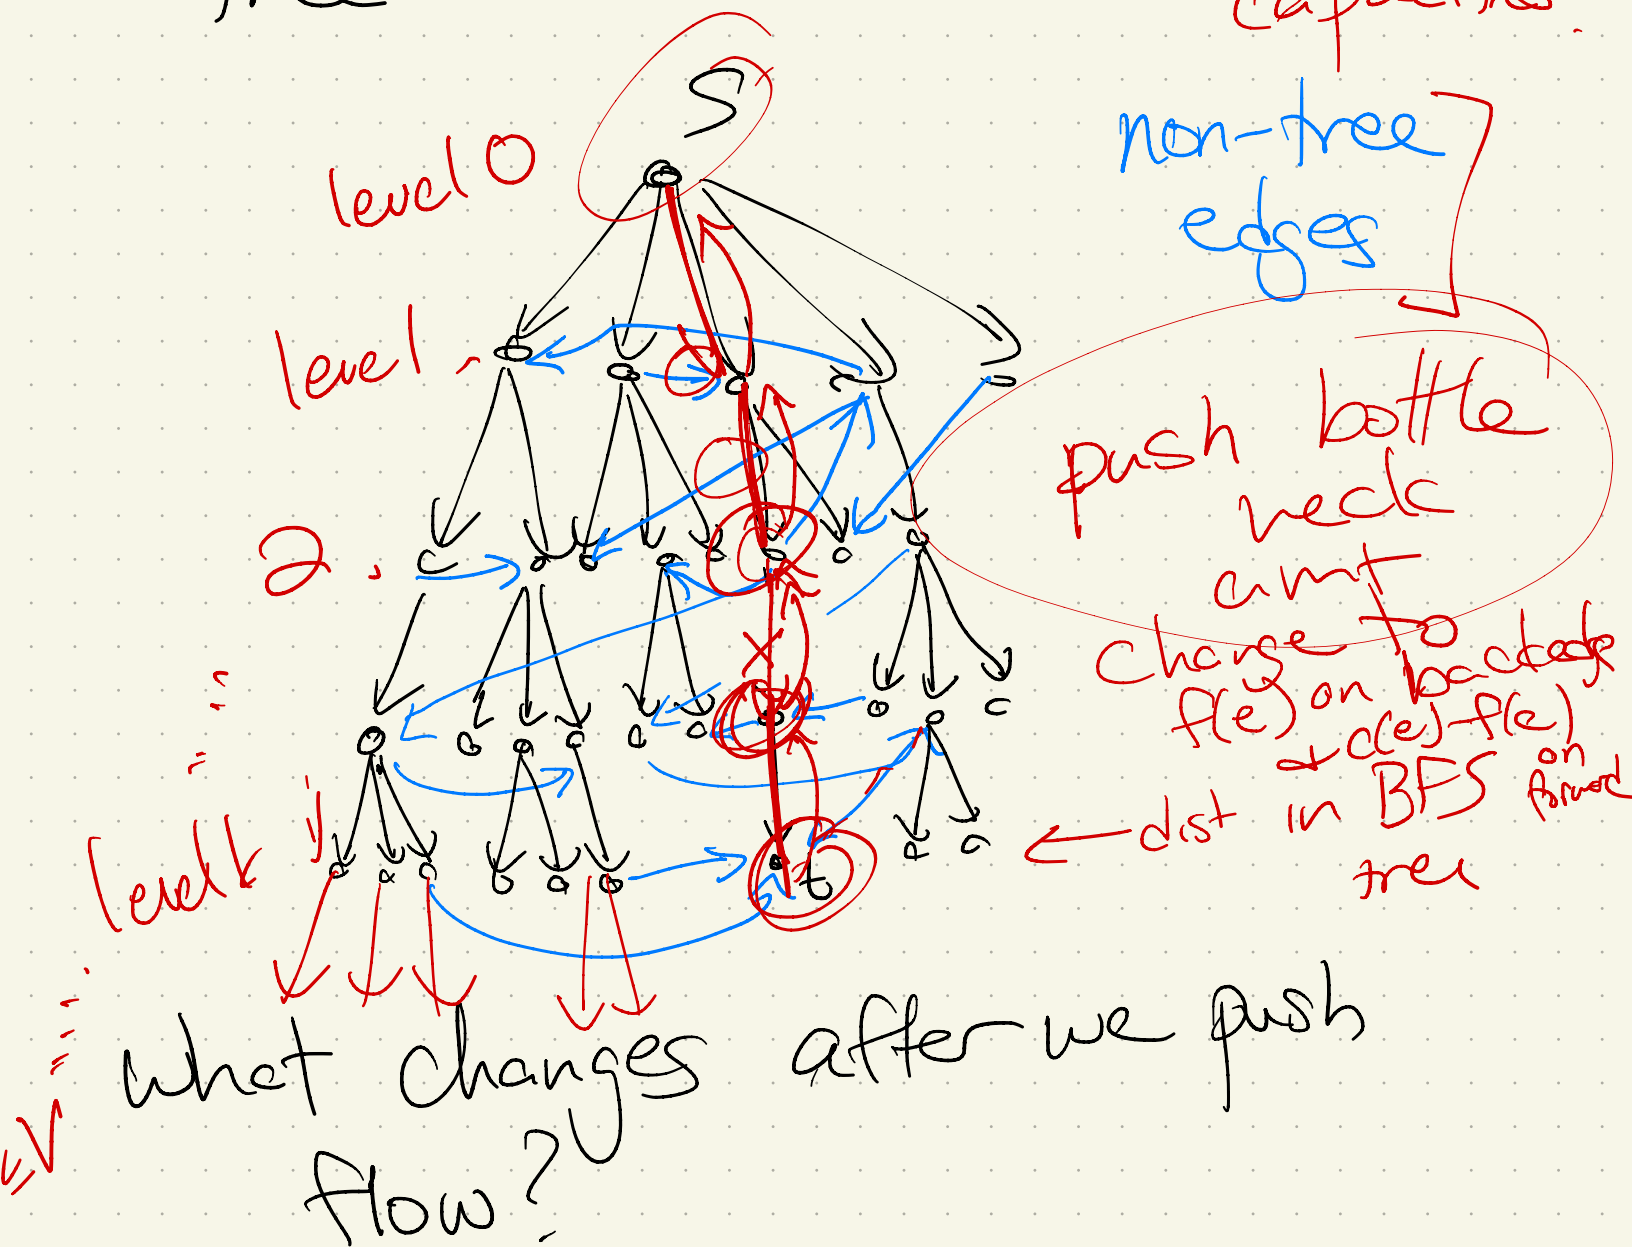 tree
capacities.
S
level 0
non-tree
edges
level 1
push bottle
neck
amt
2
change to
f(e) on backedge
+ c(e)-f(e)
on
forward
level k
t
← dist in BFS
tree
what changes after we push
flow?
≤V